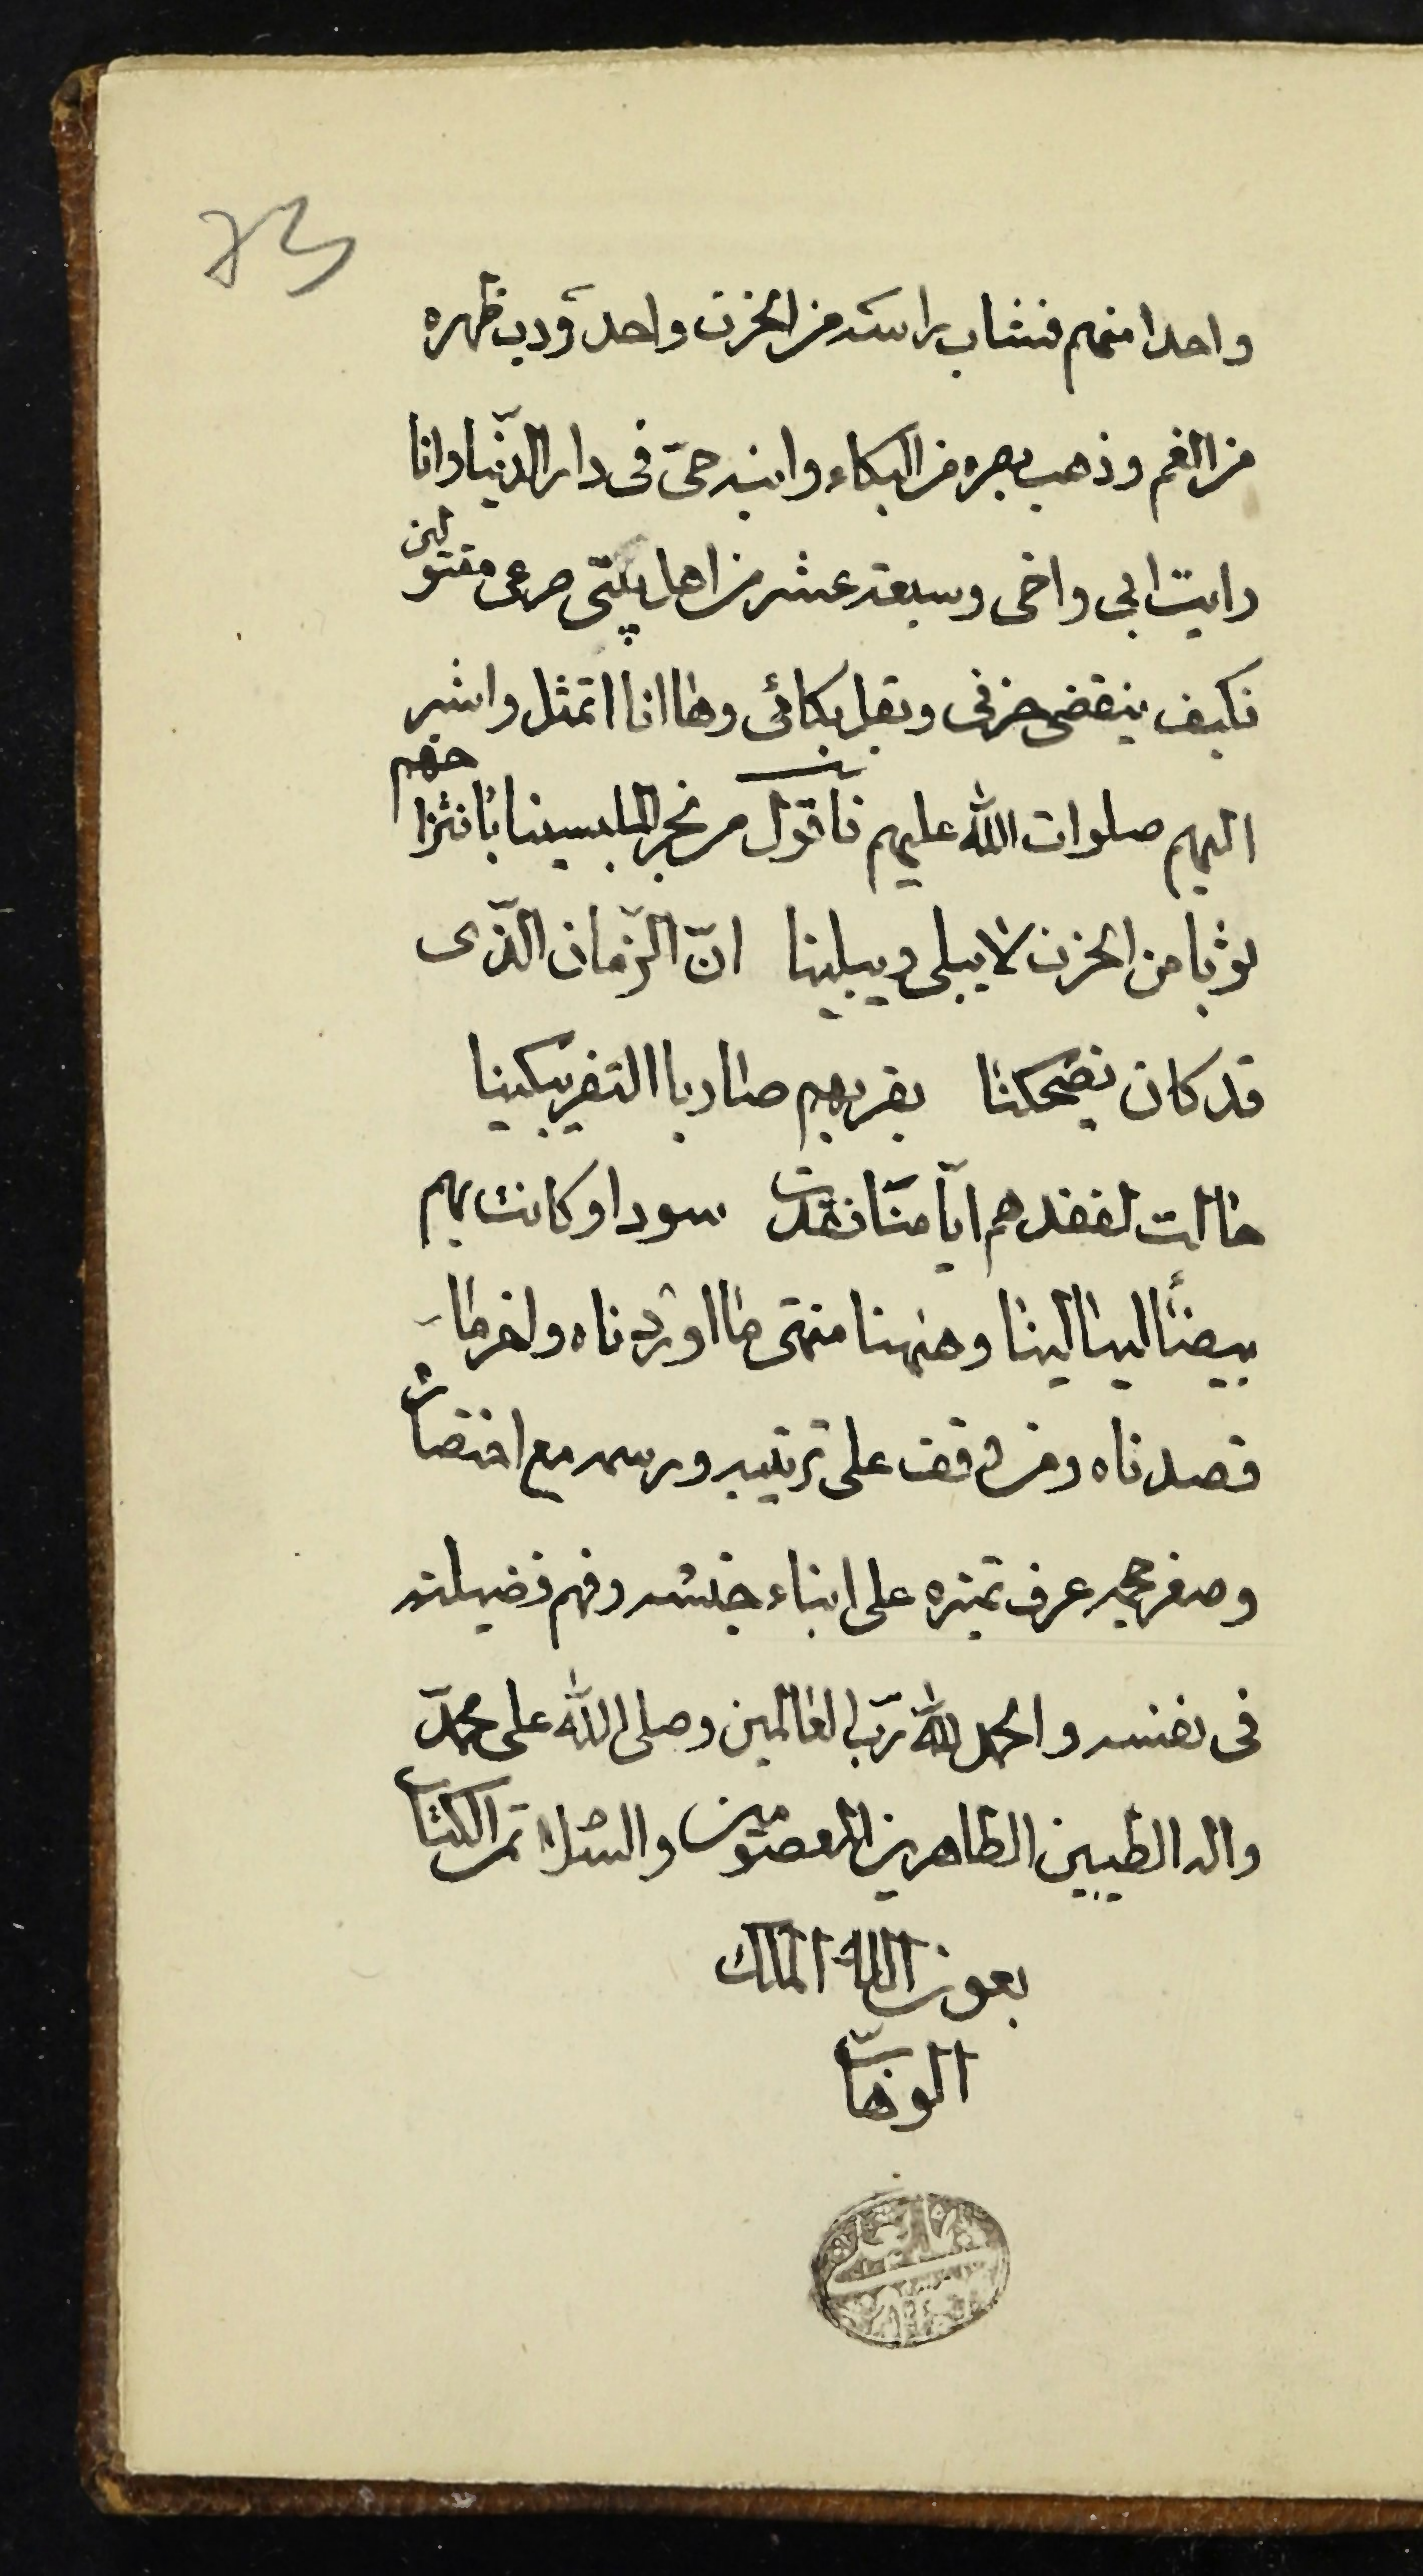 73
واحدا منهم فشاب راسه من الحزن واحدودب ظهره
من الغم وذهب بصره من البكاء وابنه حی فی دار الدّنیا وانا
رایت ابی واخی وسبعة عشر من اهل بیتی صرعی مقتولین
فکیف ینقضی حزنی ویقل بکائی وها انا اتمثل واشیر
الیهم صلوات الله علیهم فاقول من مخبر الملبسینا بانتزاحهم
ثوبا من الحزن لا یبلی ویبلینا انّ الزّمان الّذی
قد کان یضحکنا بقربهم صار بالتفریق یبکینا
حالت لفقدهم ایّامنا فغدت سودا وکانت بهم
بیضاً لیالینا وههنا منتهی ما اوردناه واخر ما
قصدناه ومن وقف علی ترتیبه ورسمه مع اختصاره
وصغر حجمه عرف تمیزه علی ابناء جنسه وفهم فضیلته
فی نفسه والحمد لله ربّ العالمین وصلی الله علی محمّد
واله الطیبین الطاهرین المعصومین والسّلام تمّ الکتاب
بعون الله الملک
الوهّاب